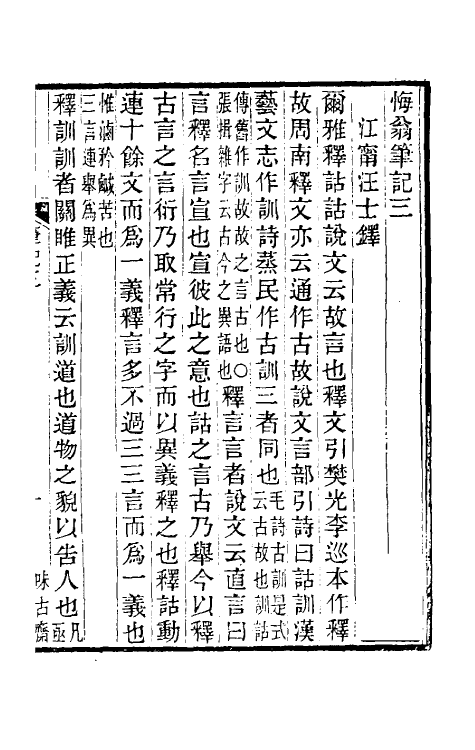 悔翁筆記三
江甯汪士鐸
爾雅釋詁詁說文云故言也釋文引樊光李巡本作釋
故周南釋文亦云通作古故說文言部引詩曰詁訓漢
藝文志作訓詩蒸民作古訓三者同也毛詩古訓是式云古故也訓詁
傳舊作訓故故之言古也張揖雜字云古今之異語也〇釋言言者說文云直言曰
言釋名言宣也宣彼此之意也詁之言古乃舉今以釋
古言之言衍乃取常行之字而以異義釋之也釋詁動
連十餘文而爲一義釋言多不過三三言而爲一義也
惟滷矜鹹苦也三言連舉爲異
釋訓訓者關睢正義云訓道也道物之貌以告人也凡
一
味古齋